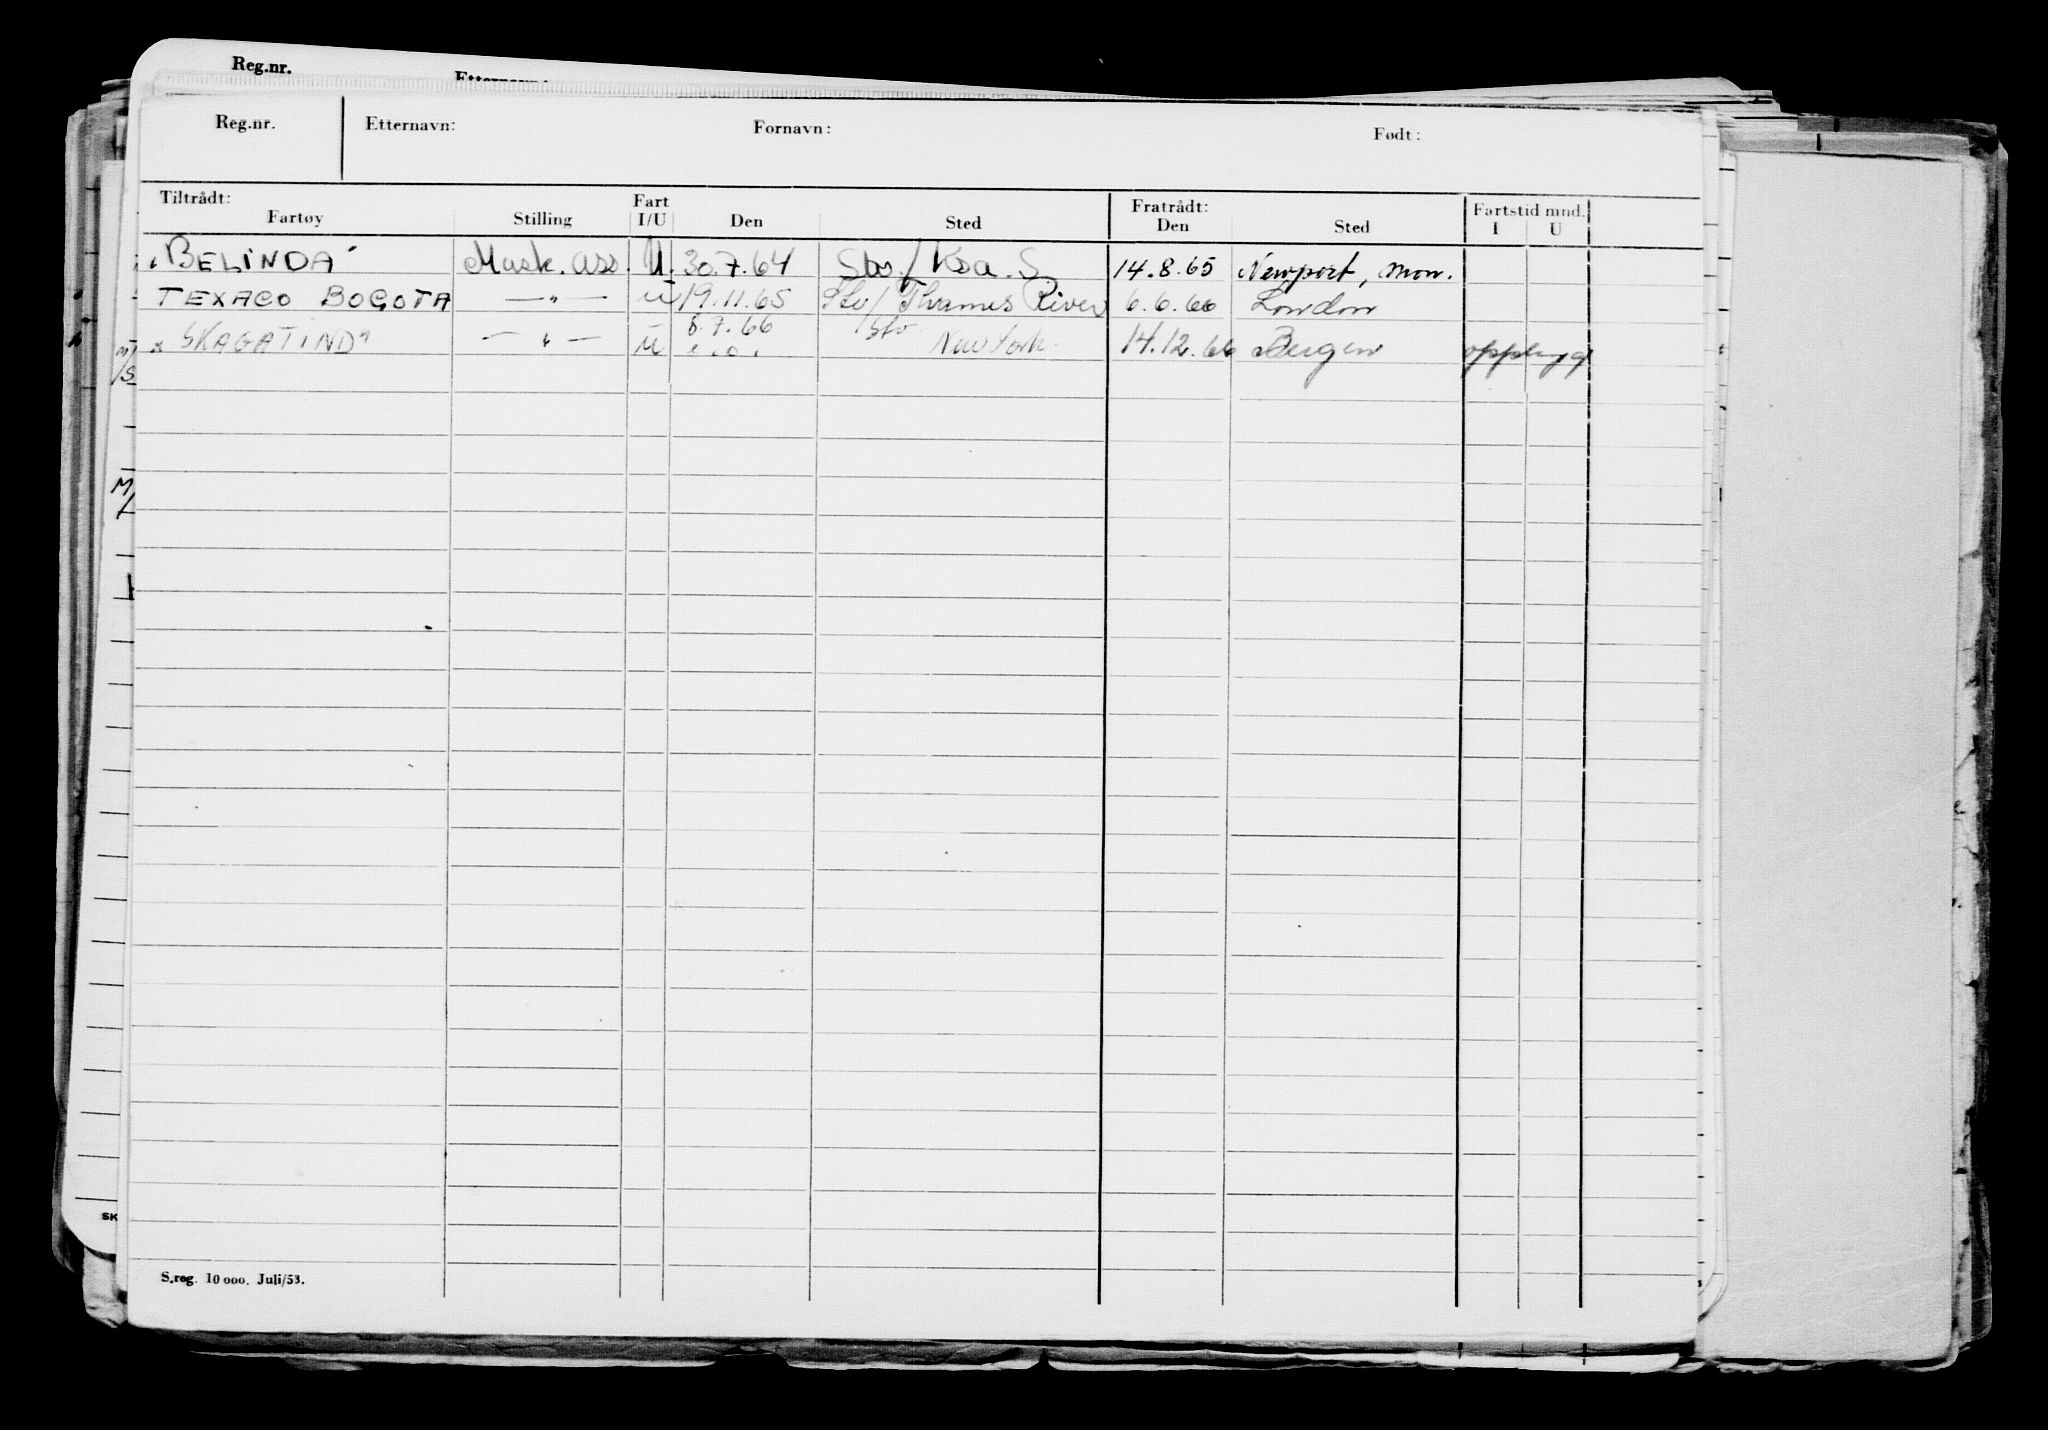 Reg.nr.
Etternavn:
Reg.nr. Etternavn: Fornavn: Født:
Tiltrådt: Fart Fratrådt: Fartstid mnd.
Fartøy Stilling I/U Den Sted Den Sted I U
"BELINDA" Mask. ass. U. 30.7.64 / Kra. S 14.8.65 Newport, Mon.
TEXACO BOGOTA —"— U 19.11.65 Stv/ Thames River 6.6.66 London
8.7.66 Stv
"SKAGATIND" —"— U New York 14.12.66 Bergen
M/
S.reg. 10 000. Juli/53.
SK